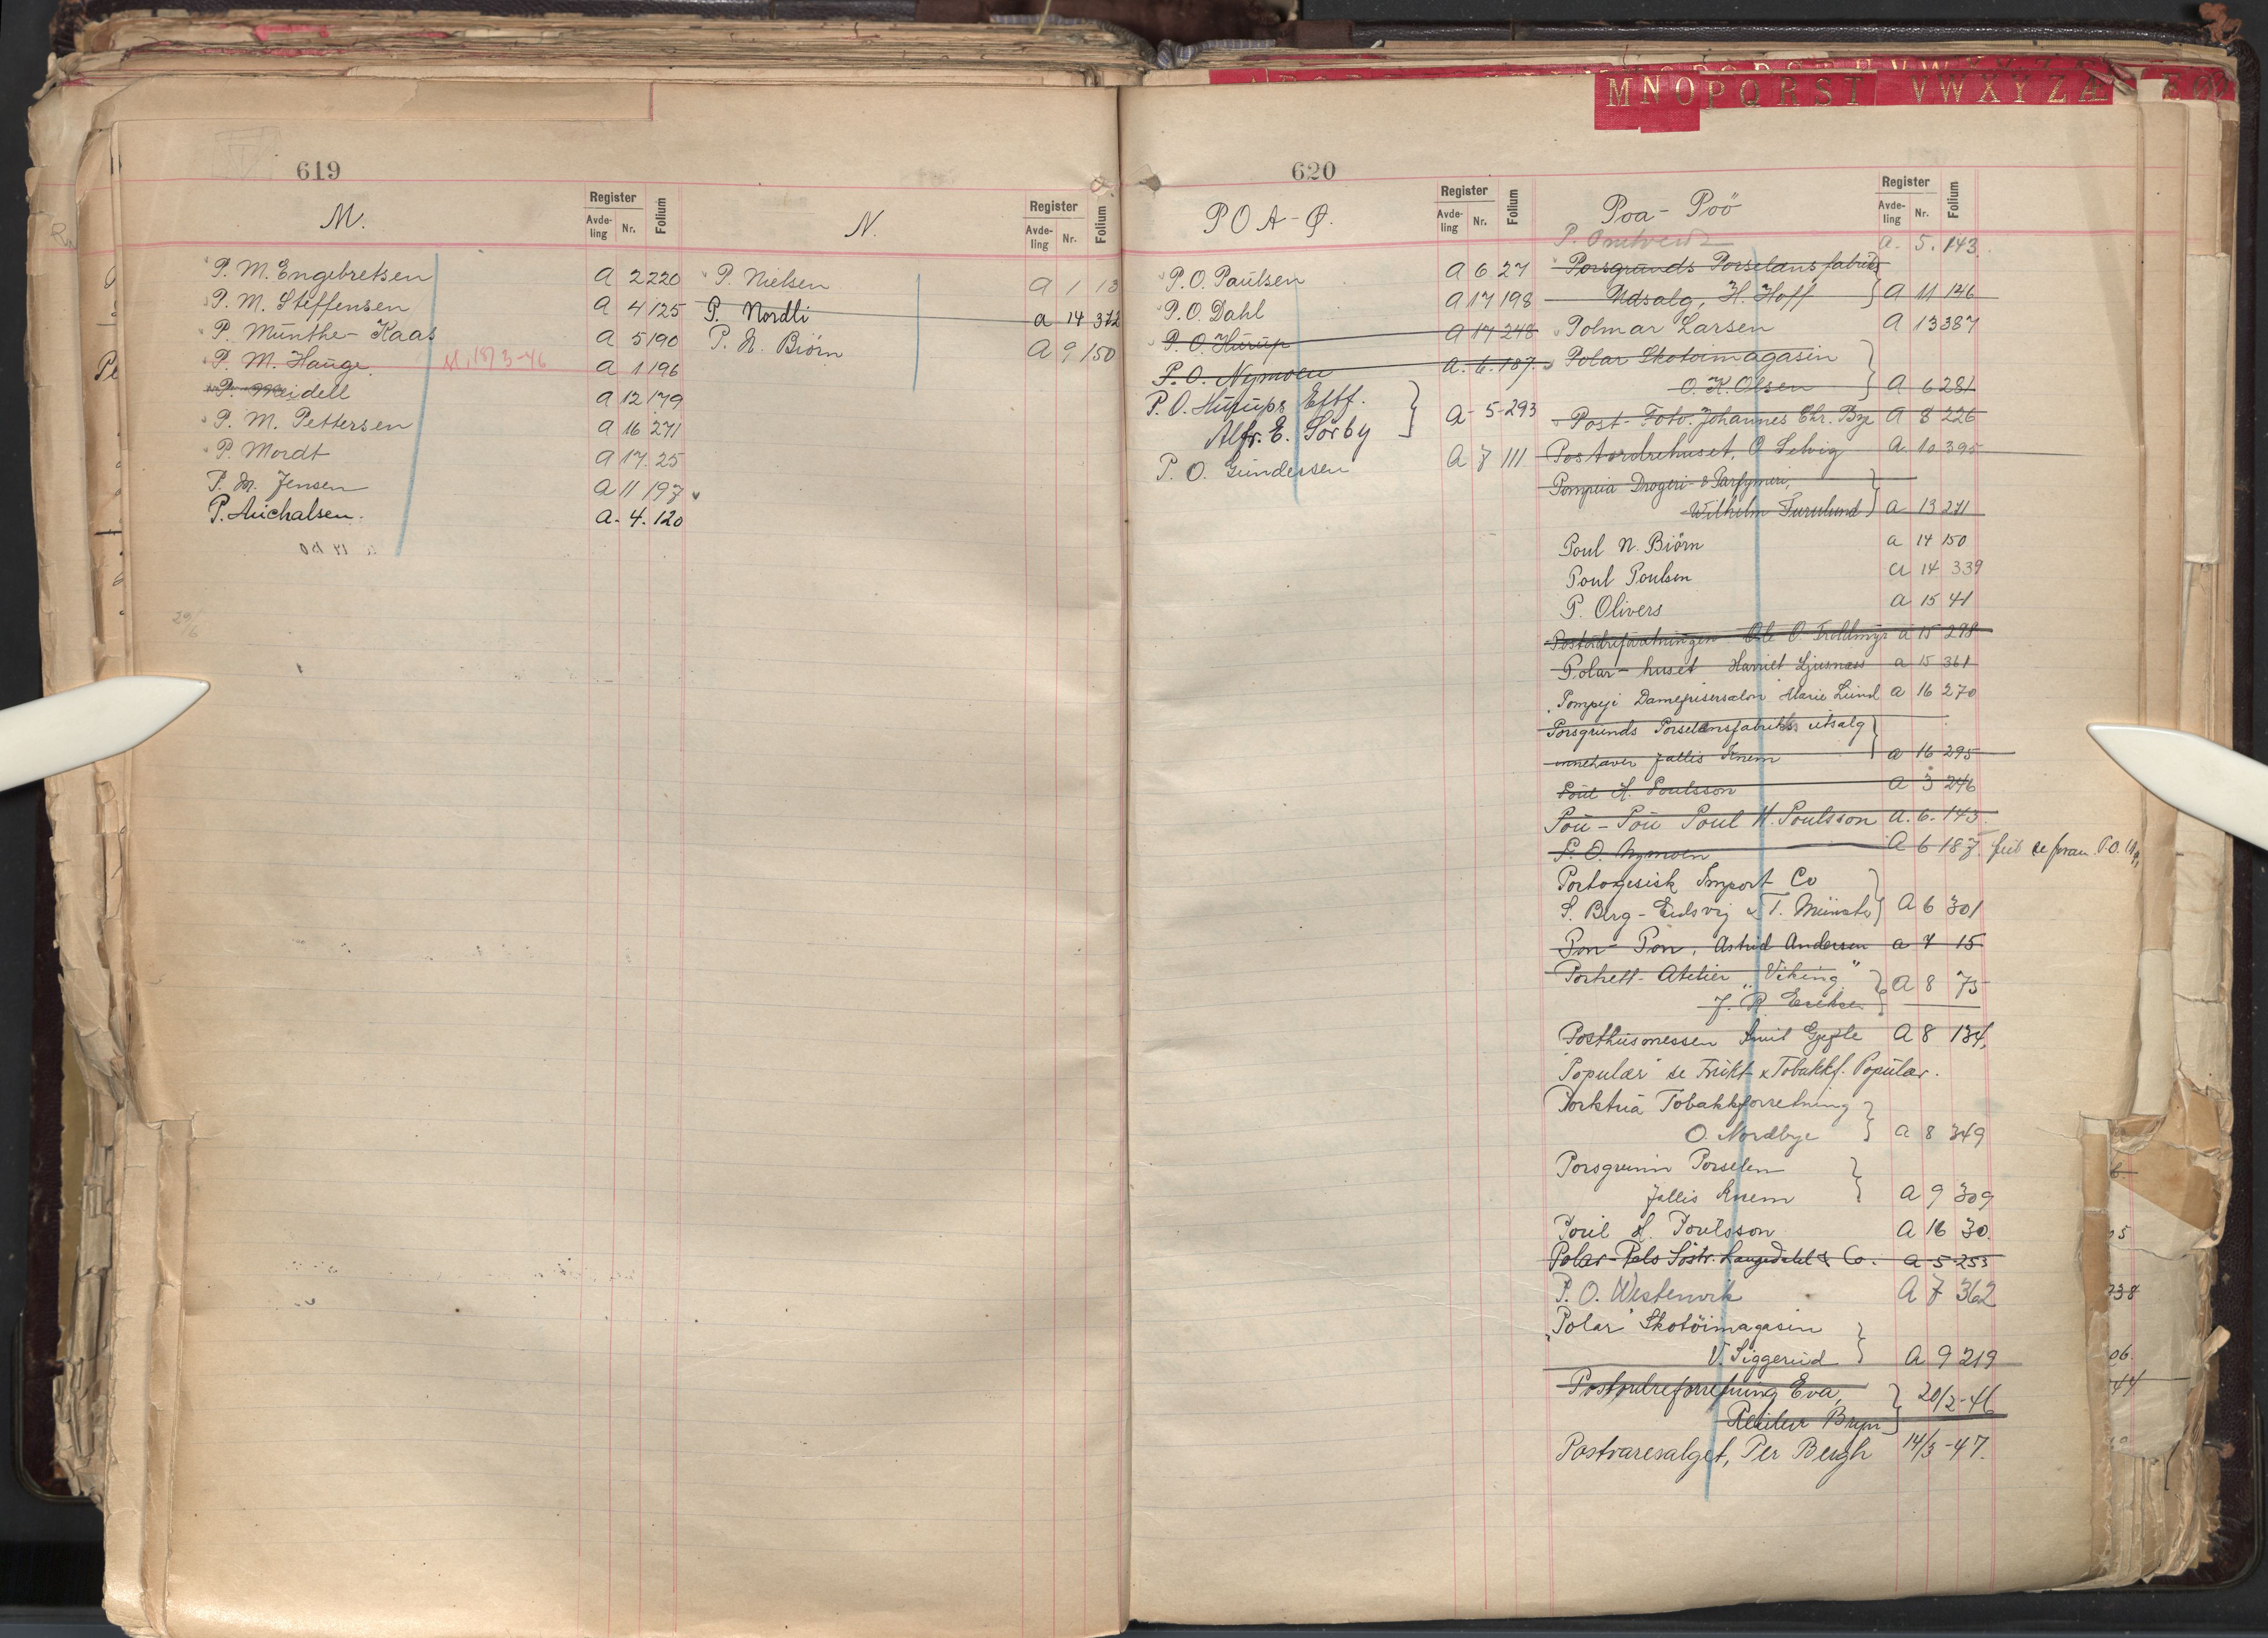 MNOPQRST VWXYZÆ
619
M.
Register
Avde-ling Nr. Folium
P. M. Engebretsen A 2 220
P. M. Steffensen A 4 125
P. Münthe-Kaas A 5 190
P. M. Hauge. A 1 196
P. Meidell A 12 179
P. M. Pettersen A 16 271
P. Mordt A 17. 25
P. M. Jensen A 11 197
P. Michalsen. A. 4. 120
29/6
N.
Register
Avde-ling Nr. Folium
P. Nielsen A 1 13
P. Nordli a 14 312
P. N. Biörn A 9 150
620
P O A - Ø.
Register
Avde-ling Nr. Folium
P. O. Paulsen A 6 27
P. O. Dahl A 17 198
P. O. Hürüp A 17 248
P. O. Nymoen A. 6. 187.
P. O. Hürüps Eftf.
Alfr. E. Sørby A - 5 - 293
P. O. Gundersen A 7 111
Poa - Poö
Register
Avde-ling Nr. Folium
a. 5. 143.
Porsgrunds Porselansfabriks
Udsalg, H. Hoff A 11 146
Polmar Larsen A 13 387
Polar Skotöimagasin
O. K. Olsen A 6 281
Post-Foto. Johannes Chr. Bye A 8 226
Postordrehuset, O Selvig A. 10 395
Pompeia Drogeri- & Parfymeri,
Wilhelm Furulund a 13 271
Poul N. Biörn a 14 150
Poul Poulsen a 14 339
P. Olivers a 15 41
Postordreforretningen Ole O Troldmyr a 15 298
Polar-huset Harriet Ljusnæss a 15 361
Pompeji Damefrisersalon Marie Lund a 16 270
Porsgrunds Porselensfabrikks utsalg
innehaver Jallis Knem a 16 295
Poul H. Poulsson A 3 246
Pou-Pou Poul H. Poulsson a. 6. 143.
P. O. Nymoen A 6 187. se foran P.O.
Portogesisk Import Co
S. Berg-Eidsvig & T. Münster A 6 301
Pon-Pon, Astrid Andersen a 7 15
Portrett-Atelier "Viking"
J. R. Eriksen A 8 75
Posthusmessen Emil Gjefle A 8 134,
Populær se Frukt & Tobakkf. Populær.
Porktua Tobakkforretning
O. Nordbye A 8 349
Porsgrunn Porselen
Jallis Knem A 9 309
Poul H. Poulsson A 16 30.
Polar-Pels Søstr. Langedahl & Co. a 5 253
P. O. Westenvik A 7 362
"Polar" Skotöimagasin
V. Siggerud A 9 219
Postordreforretning Eva,
Reidar Bryn 20/2-46
Postvaresalget, Per Bergh 14/3-47.